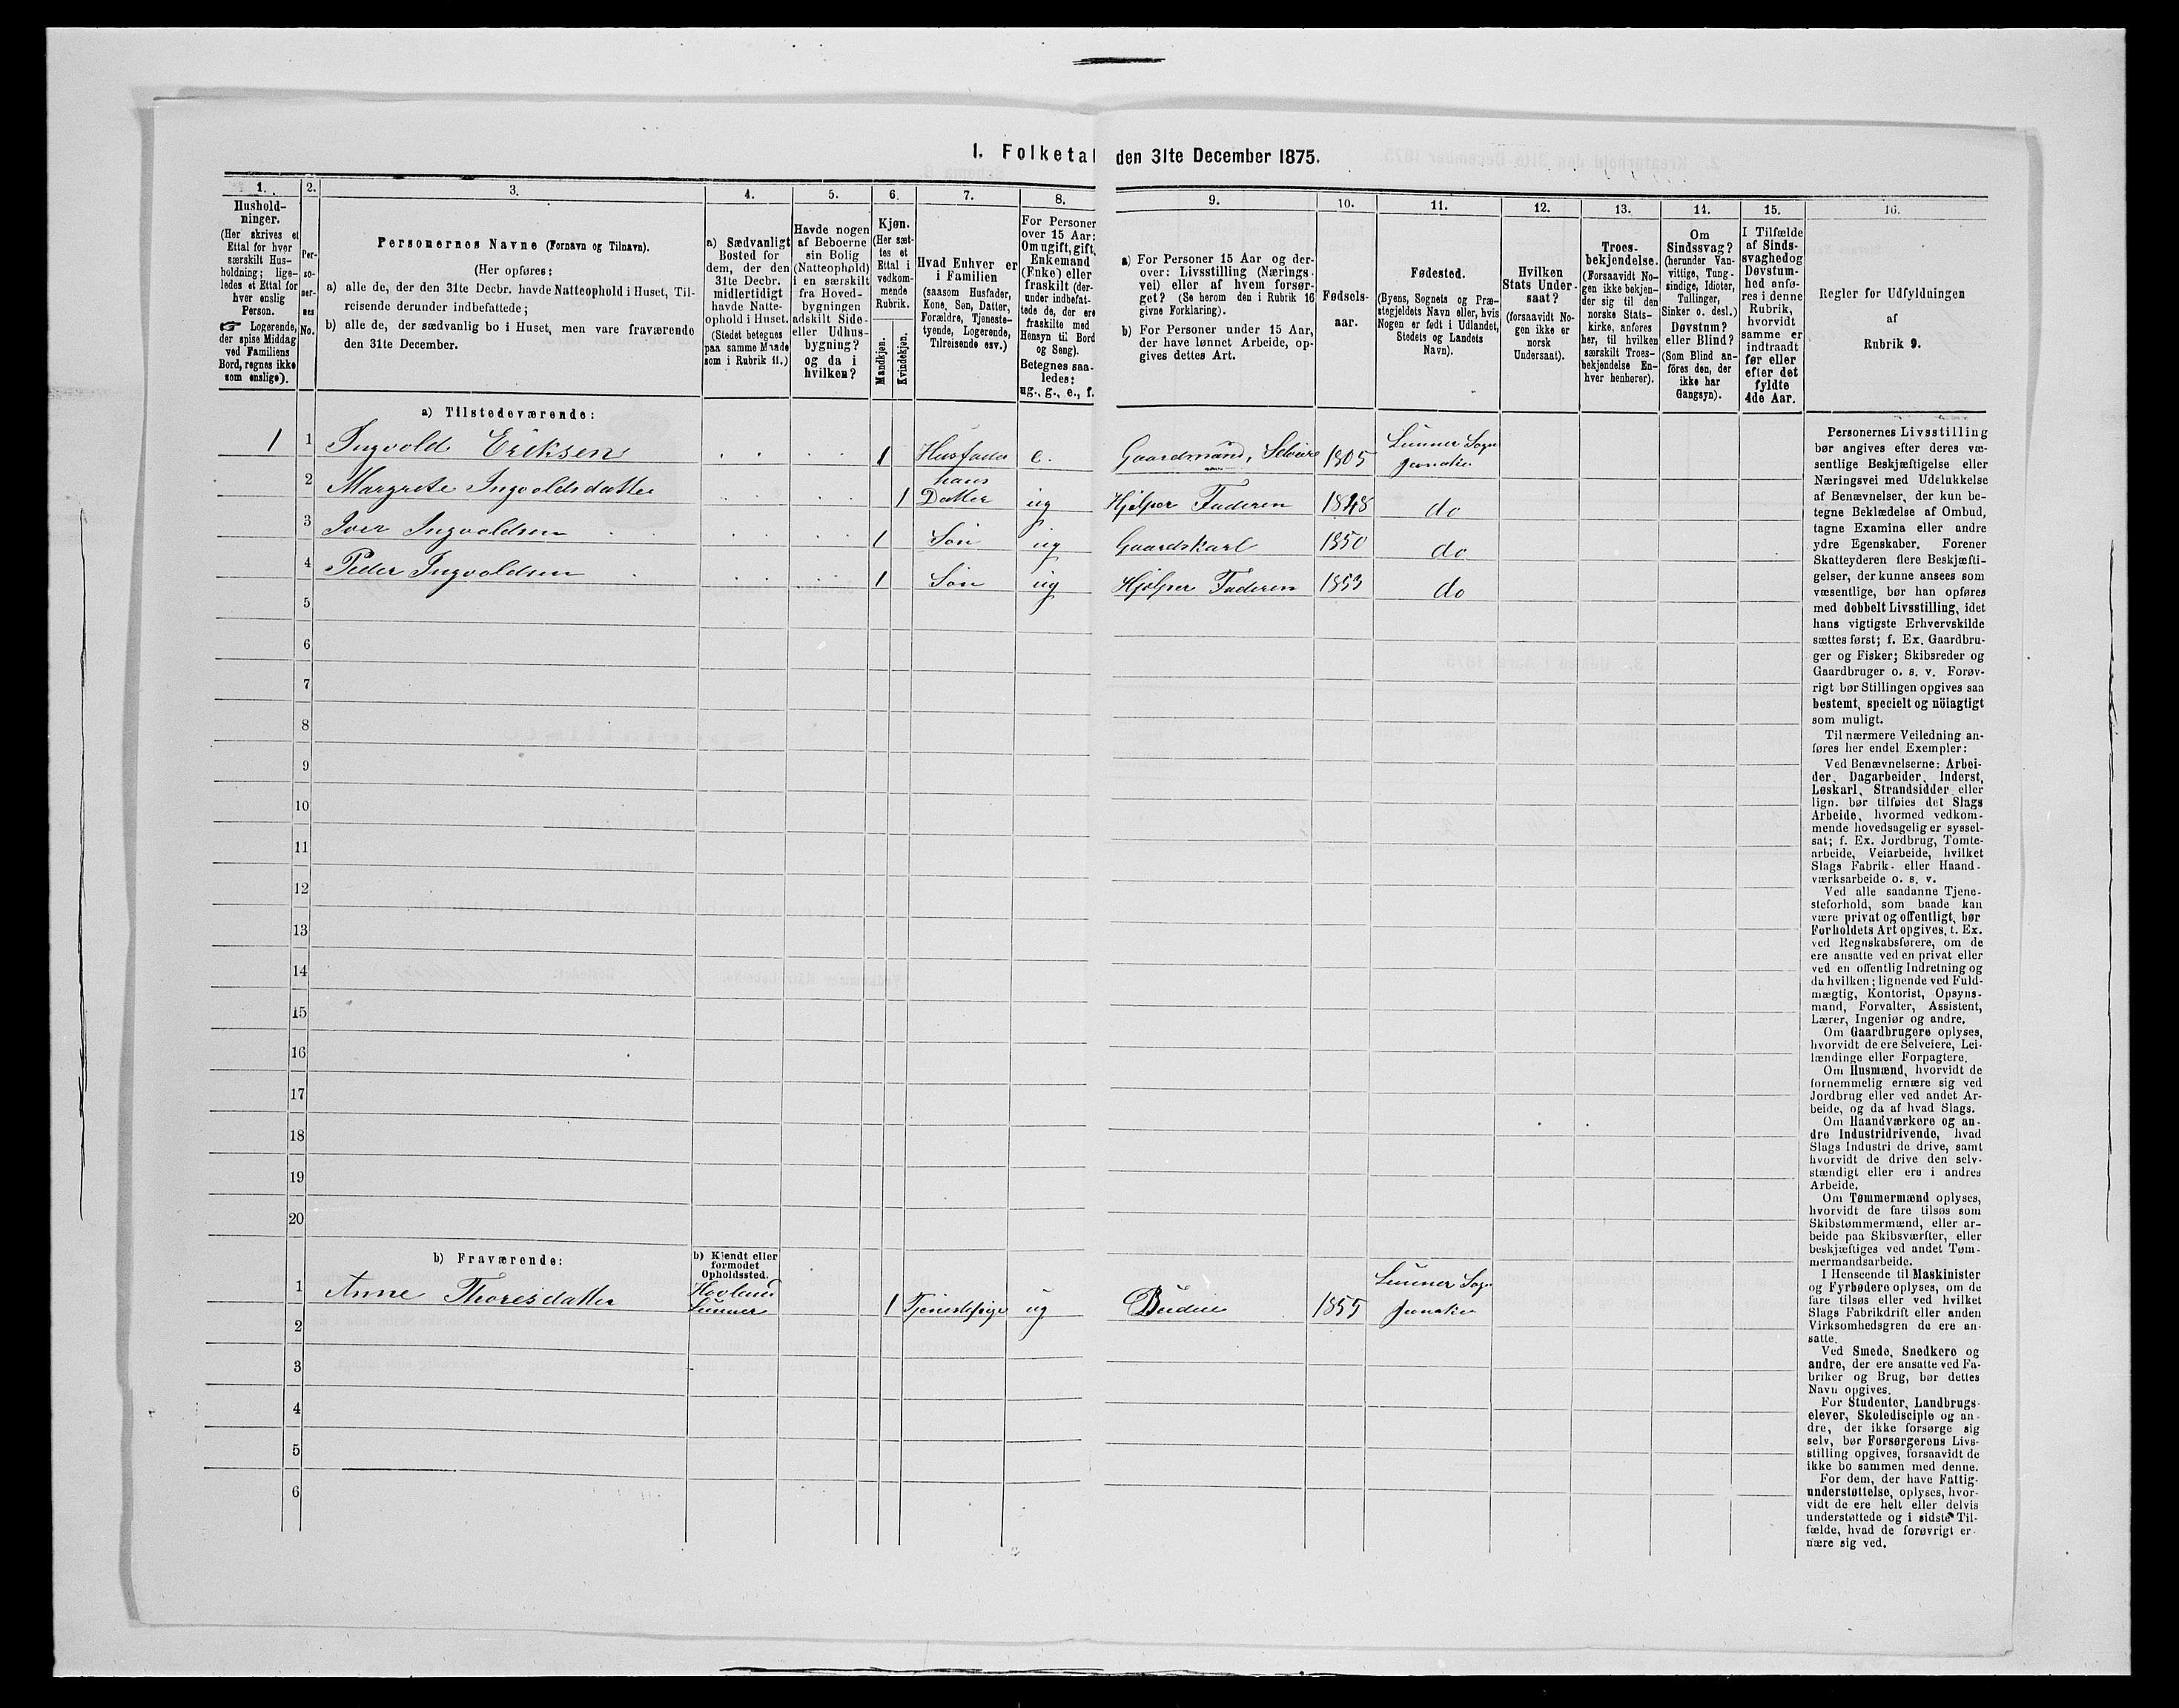 1. Folketal den 31te December 1875.
1.
Hushold-
ninger.
(Her skrives et
Ettal for hver
særskilt Hus-
holdning; lige-
ledes et Ettal for
hver enslig
Person.
☞ Logerende,
der spise Middag
ved Familiens
Bord, regnes ikke
som enslige).
2.
Per-
so-
ner-
nes
No.
3.
Personernes Navne (Fornavn og Tilnavn).
(Her opføres:
a) alle de, der den 31te Decbr. havde Natteophold i Huset, Til-
reisende derunder indbefattede;
b) alle de, der sædvanlig bo i Huset, men vare fraværende
den 31te December.
4.
a) Sædvanligt
Bosted for
dem, der den
31te Decbr.
midlertidigt
havde Natte-
ophold i Huset.
(Stedet betegnes
paa samme Maade
som i Rubrik 11.)
5.
Havde nogen
af Beboerne
sin Bolig
(Natteophold)
i en særskilt
fra Hoved-
bygningen
adskilt Side-
eller Udhus-
bygning?
og da i
hvilken?
6.
Kjøn.
(Her sæt-
tes et
Ettal i
vedkom-
mende
Rubrik.
Mandkjøn.
Kvindekjøn.
7.
Hvad Enhver er
i Familien
(saasom Husfader,
Kone, Søn, Datter,
Forældre, Tjeneste-
tyende, Logerende,
Tilreisende osv.)
8.
For Personer
over 15 Aar:
Om ugift, gift,
Enkemand
(Enke) eller
fraskilt (der-
under indbefat-
tede de, der ere
fraskilte med
Hensyn til Bord
og Seng).
Betegnes saa-
ledes:
ug., g., e., f.
9.
a) For Personer 15 Aar og der-
over: Livsstilling (Nærings-
vei) eller af hvem forsør-
get? (Se herom den i Rubrik 16
givne Forklaring).
b) For Personer under 15 Aar,
der have lønnet Arbeide, op-
gives dettes Art.
10.
Fødsels-
aar.
11.
Fødested.
(Byens, Sognets og Præ-
stegjeldets Navn eller, hvis
Nogen er født i Udlandet,
Stedets og Landets
Navn).
12.
Hvilken
Stats Under-
saat?
(forsaavidt No-
gen ikke er
norsk
Undersaat).
13.
Troes-
bekjendelse.
(Forsaavidt No-
gen ikke bekjen-
der sig til den
norske Stats-
kirke, anføres
her, til hvilken
særskilt Troes-
bekjendelse En-
hver henhører).
14.
Om
Sindssvag?
(herunder Van-
vittige, Tung-
sindige, Idioter,
Tullinger,
Sinker o. desl.)
Døvstum?
eller Blind?
(Som Blind an-
föres den, der
ikke har
Gangsyn).
15.
I Tilfælde
af Sinds-
svaghed og
Døvstum-
hed anfø-
res i denne
Rubrik,
hvorvidt
samme er
indtraadt
før eller
efter det
fyldte
4de Aar.
16.
Regler for Udfyldningen
af
Rubrik 9.
a) Tilstedeværende:
1 1 Ingvold Eriksen 1 Husfader e. Gaardmand, Selveier 1805 Lunner Sogn
Jevnaker
2 Margrete Ingvoldsdatter 1 hans
Datter ug Hjelper Faderen 1848 do
3 Iver Ingvoldsen 1 Søn ug Gaardskarl 1850 do
4 Peder Ingvoldsen 1 Søn ug Hjelper Faderen 1853 do
5
6
7
8
9
10
11
12
13
14
15
16
17
18
19
20
b) Fraværende:
b) Kjendt eller
formodet
Opholdssted.
1 Anne Thoresdatter Hovland
Lunner 1 Tjenestepige ug Budeie 1855 Lunner Sogn
Jevnaker
2
3
4
5
6
Personernes Livsstilling
bør angives efter deres væ-
sentlige Beskjæftigelse eller
Næringsvei med Udelukkelse
af Benævnelser, der kun be-
tegne Beklædelse af Ombud,
tagne Examina eller andre
ydre Egenskaber. Forener
Skatteyderen flere Beskjæfti-
gelser, der kunne ansees som
væsentlige, bør han opføres
med dobbelt Livsstilling, idet
hans vigtigste Erhvervskilde
sættes først; f. Ex. Gaardbru-
ger og Fisker; Skibsreder og
Gaardbruger o. s. v. Forøv-
rigt bør Stillingen opgives saa
bestemt, specielt og nöiagtigt
som muligt.
Til nærmere Veiledning an-
føres her endel Exempler:
Ved Benævnelserne: Arbei-
der, Dagarbeider, Inderst,
Løskarl, Strandsidder eller
lign. bør tilføies det Slags
Arbeide, hvormed vedkom-
mende hovedsagelig er syssel-
sat; f. Ex. Jordbrug, Tomte-
arbeide, Veiarbeide, hvilket
Slags Fabrik- eller Haand-
værksarbeide o. s. v.
Ved alle saadanne Tjene-
steforhold, som baade kan
være privat og offentligt, bør
Forholdets Art opgives, t. Ex.
ved Regnskabsførere, om de
ere ansatte ved en privat eller
ved en offentlig Indretning og
da hvilken; lignende ved Fuld-
mægtig, Kontorist, Opsyns-
mand, Forvalter, Assistent,
Lærer, Ingeniør og andre.
Om Gaardbrugere oplyses,
hvorvidt de ere Selveiere, Lei-
lændinge eller Forpagtere.
Om Husmænd, hvorvidt de
fornemmelig ernære sig ved
Jordbrug eller ved andet Ar-
beide, og da af hvad Slags.
Om Haandværkere og an-
dre Industridrivende, hvad
Slags Industri de drive, samt
hvorvidt de drive den selv-
stændigt eller ere i andres
Arbeide.
Om Tømmermænd oplyses,
hvorvidt de fare tilsøs som
Skibstømmermænd, eller ar-
beide paa Skibsværfter, eller
beskjæftiges ved andet Tøm-
mermandsarbeide.
I Henseende til Maskinister
og Fyrbødere oplyses, om de
fare tilsøs eller ved hvilket
Slags Fabrikdrift eller anden
Virksomhedsgren de ere an-
satte.
Ved Smede, Snedkere og
andre, der ere ansatte ved Fa-
briker og Brug, bør dettes
Navn opgives.
For Studenter, Landbrugs-
elever, Skoledisciple og an-
dre, der ikke forsørge sig
selv, bør Forsørgerens Livs-
stilling opgives, forsaavidt de
ikke bo sammen med denne.
For dem, der have Fattig-
understøttelse, oplyses, hvor-
vidt de ere helt eller delvis
understøttede og i sidste Til-
fælde, hvad de forøvrigt er-
nære sig ved.